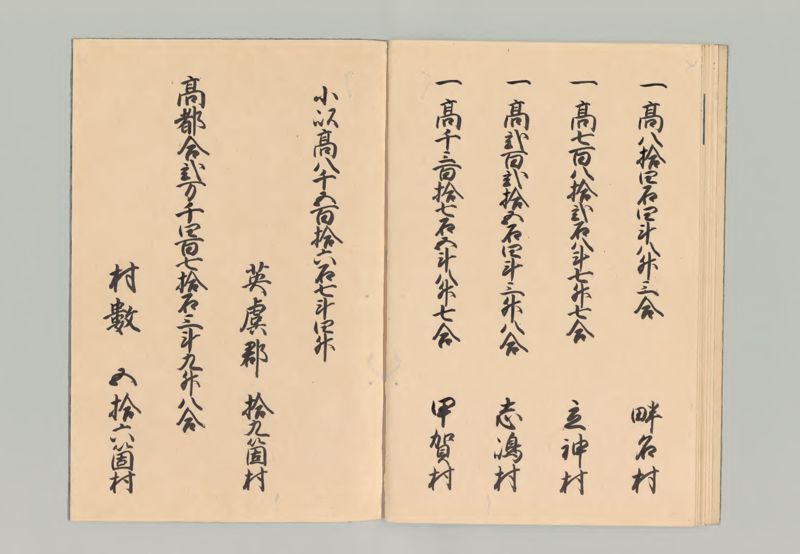 一高八拾四石四斗八升三合 畔名村
一高七百八拾弐石八斗七升七合 立神村
一高弐百弐拾五石四斗三升八合 志嶋村
一高千三百拾七石五斗八升七合 甲賀村
小以高八千五百拾六石七斗四升
英虞郡 拾九箇村
高都合弐万千四百七拾石三斗九升八合
村數 五拾六箇村